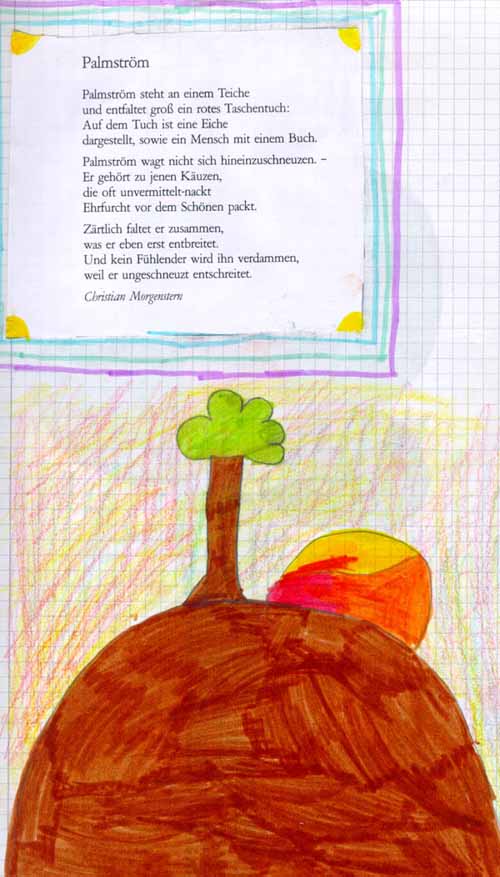 Palmström
Palmström steht an einem Teiche
und entfaltet groß ein rotes Taschentuch:
Auf dem Tuch ist eine Eiche
dargestellt, sowie ein Mensch mit einem Buch.
Palmström wagt nicht sich hineinzuschneuzen. –
Er gehört zu jenen Käuzen,
die oft unvermittelt-nackt
Ehrfurcht vor dem Schönen packt.
Zärtlich faltet er zusammen,
was er eben erst entbreitet.
Und kein Fühlender wird ihn verdammen,
weil er ungeschneuzt entschreitet.
Christian Morgenstern